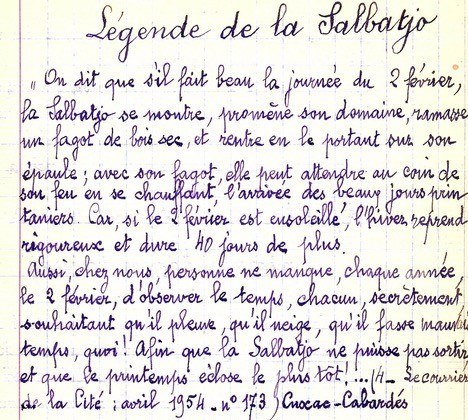 Légende de la Salbatjo
" On dit que s'il fait beau la journée du 2 février,
la Salbatjo se montre, promène son domaine, ramasse
un fagot de bois sec, et rentre en le portant sur son
épaule ; avec son fagot, elle peut attendre au coin de
son feu en se chauffant, l'arrivée des beaux jours prin
taniers. Car, si le 2 février est ensoleillé, l'hiver reprend
rigoureux et dure 40 jours de plus.
Aussi, chez nous, personne ne manque, chaque année,
le 2 février, d'observer le temps, chacun, secrètement
souhaitant qu'il pleuve, qu'il neige, qu'il fasse mauvais
temps, quoi ! Afin que la Salbatjo ne puisse pas sortir
et que le printemps éclose le plus tôt !... (4_ Le courrier
de la Cité : avril 1954 - n° 173) Cuxac-Cabardès